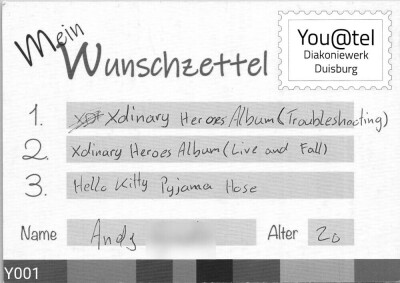 Mein
Wunschzettel
You@tel
Diakoniewerk
Duisburg
1. Xdinary Heroes Album (Troubleshooting)
2. Xdinary Heroes Album (Live and Fall)
3. Hello Kitty Pyjama Hose
Name Andy Alter 20
Y001